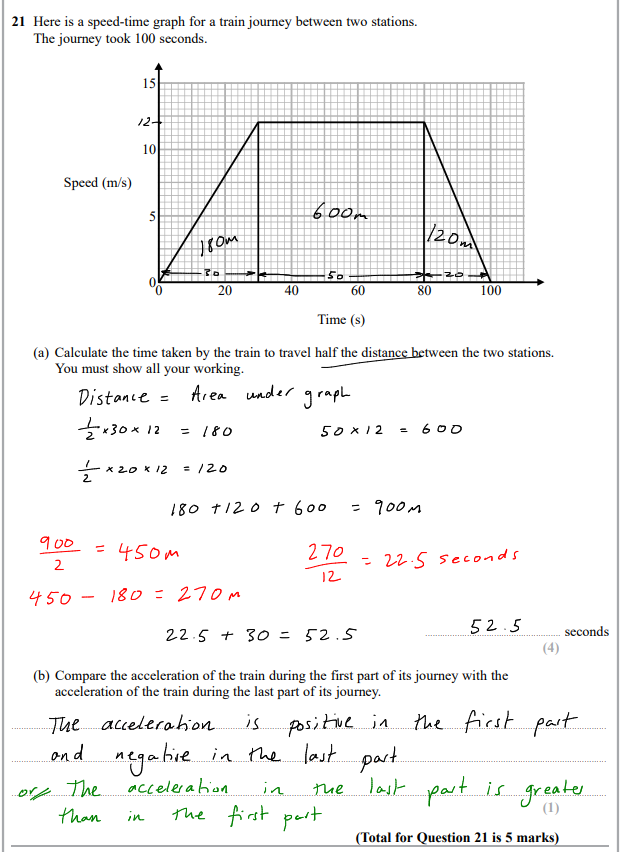 21 Here is a speed-time graph for a train journey between two stations.
The journey took 100 seconds.
15
12
10
Speed (m/s)
600m
5
180m
120m
30
50
20
0
0 20 40 60 80 100
Time (s)
(a) Calculate the time taken by the train to travel half the distance between the two stations.
You must show all your working.
Distance = Area under graph
1/2 × 30 × 12 = 180 50 × 12 = 600
1/2 × 20 × 12 = 120
180 + 120 + 600 = 900m
900/2 = 450m 270/12 = 22.5 seconds
450 - 180 = 270m
22.5 + 30 = 52.5 52.5 seconds
(4)
(b) Compare the acceleration of the train during the first part of its journey with the
acceleration of the train during the last part of its journey.
The acceleration is positive in the first part
and negative in the last part
or The acceleration in the last part is greater
(1)
than in the first part
(Total for Question 21 is 5 marks)